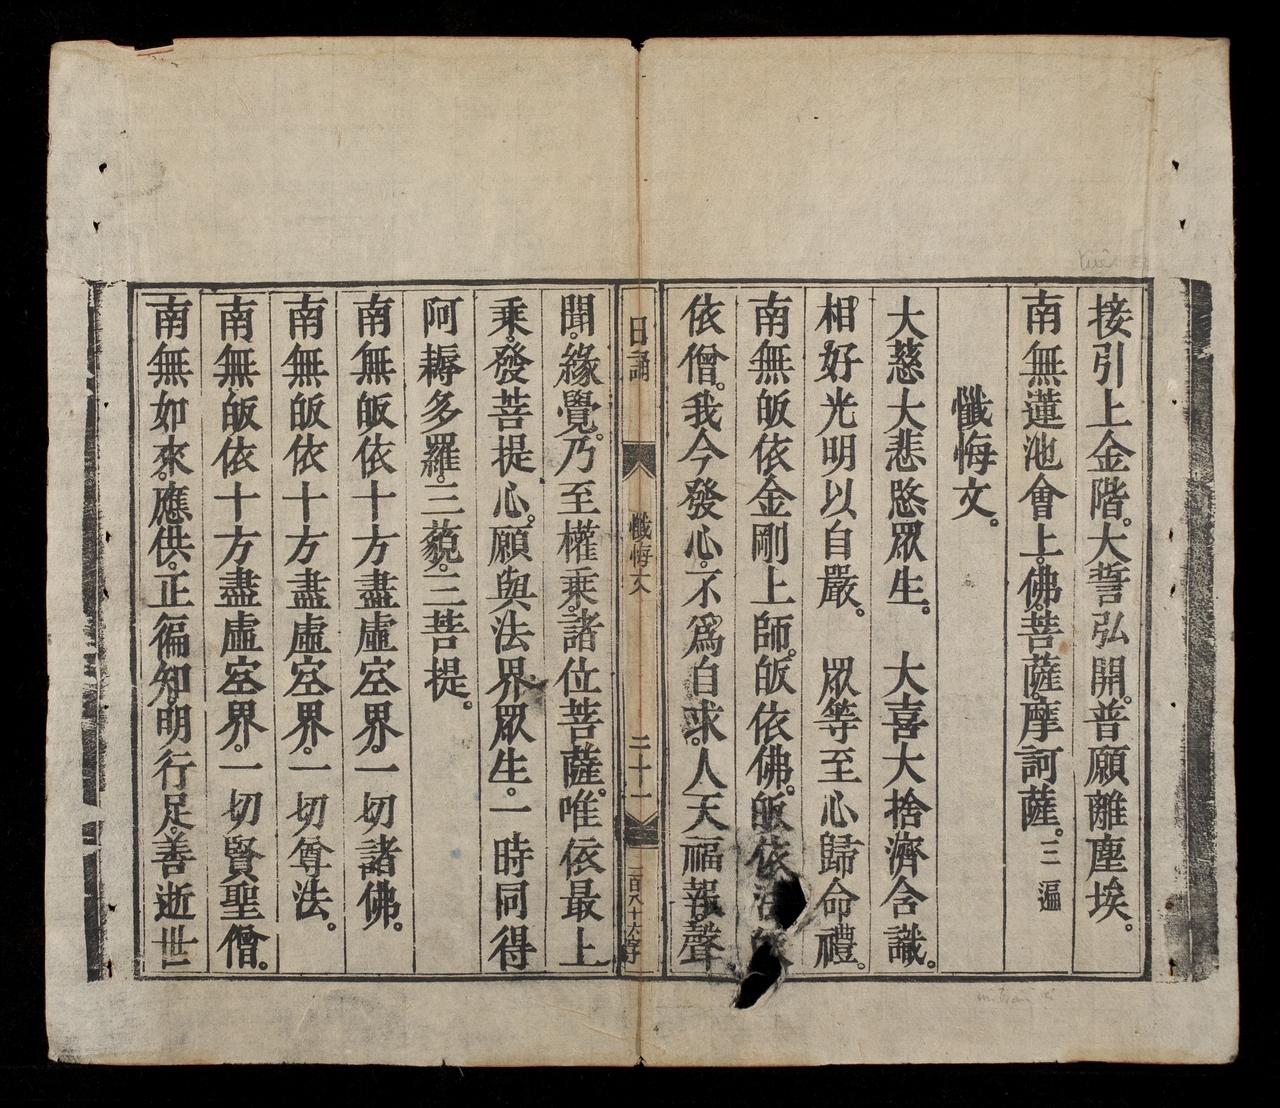 接引上金階。大誓弘開。普願離塵埃。
南無蓮池會上。佛。菩薩。摩訶薩。三遍
懺悔文。
大慈大悲愍眾生。 大喜大捨濟含識。
相好光明以自嚴。 眾等至心歸命禮。
南無皈依金剛上師。皈依佛。皈依
依僧。我今發心。不為自求。人天福報。聲
日誦 懺悔文 二十一 百八十六字
聞。緣覺。乃至權乘。諸位菩薩。唯依最上
乘。發菩提心。願與法界眾生。一時同得
阿耨多羅。三藐。三菩提。
南無皈依十方盡虛空界。一切諸佛。
南無皈依十方盡虛空界。一切尊法。
南無皈依十方盡虛空界。一切賢聖僧。
南無如來。應供。正徧知。明行足。善逝世